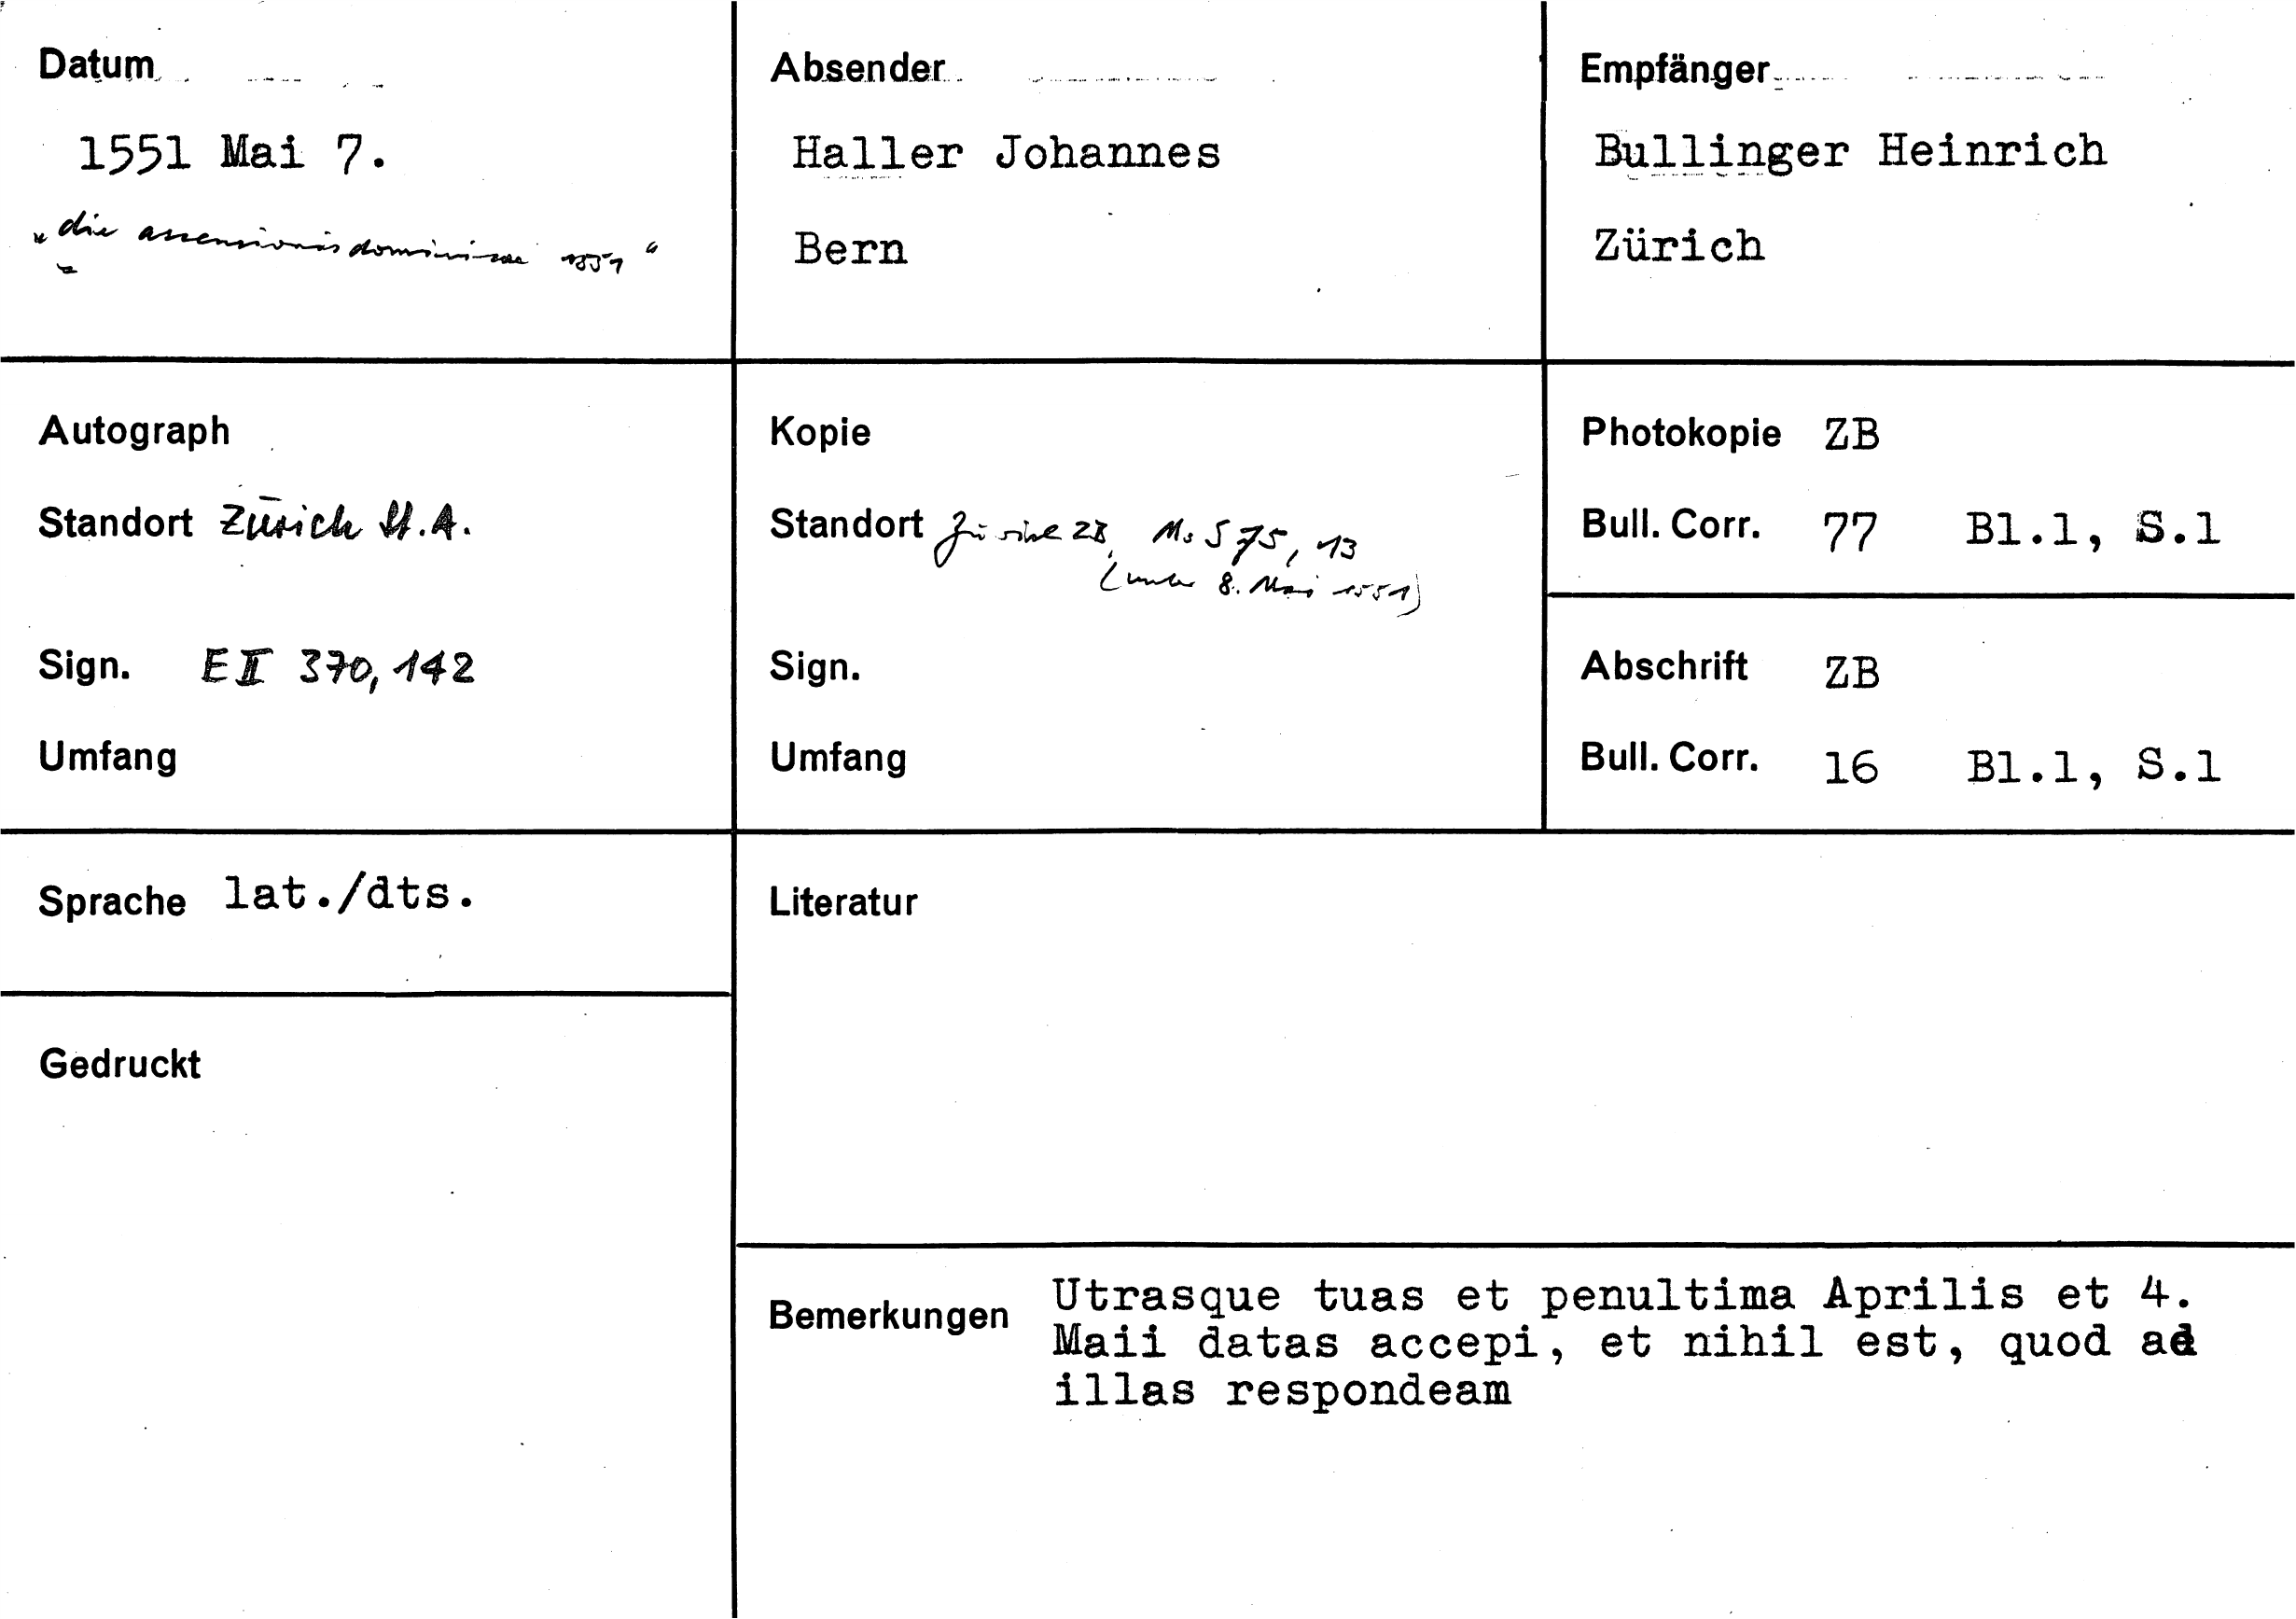 Datum
1551 Mai 7.
"die ascensionis dominicae 1551"
Absender
Haller Johannes
Bern
Empfänger
Bullinger Heinrich
Zürich
Autograph
Standort Zürich St.A.
Sign. E II 370, 142
Umfang
Kopie
Standort Zürich ZB, Ms S 75, 13
(unter 8. Mai 1551)
Sign.
Umfang
Photokopie ZB
Bull. Corr. 77 Bl.1, S.1
Abschrift ZB
Bull. Corr. 16 Bl.1, S.1
Sprache lat./dts.
Gedruckt
Literatur
Bemerkungen Utrasque tuas et penultima Aprilis et 4.
Maii datas accepi, et nihil est, quod ad
illas respondeam